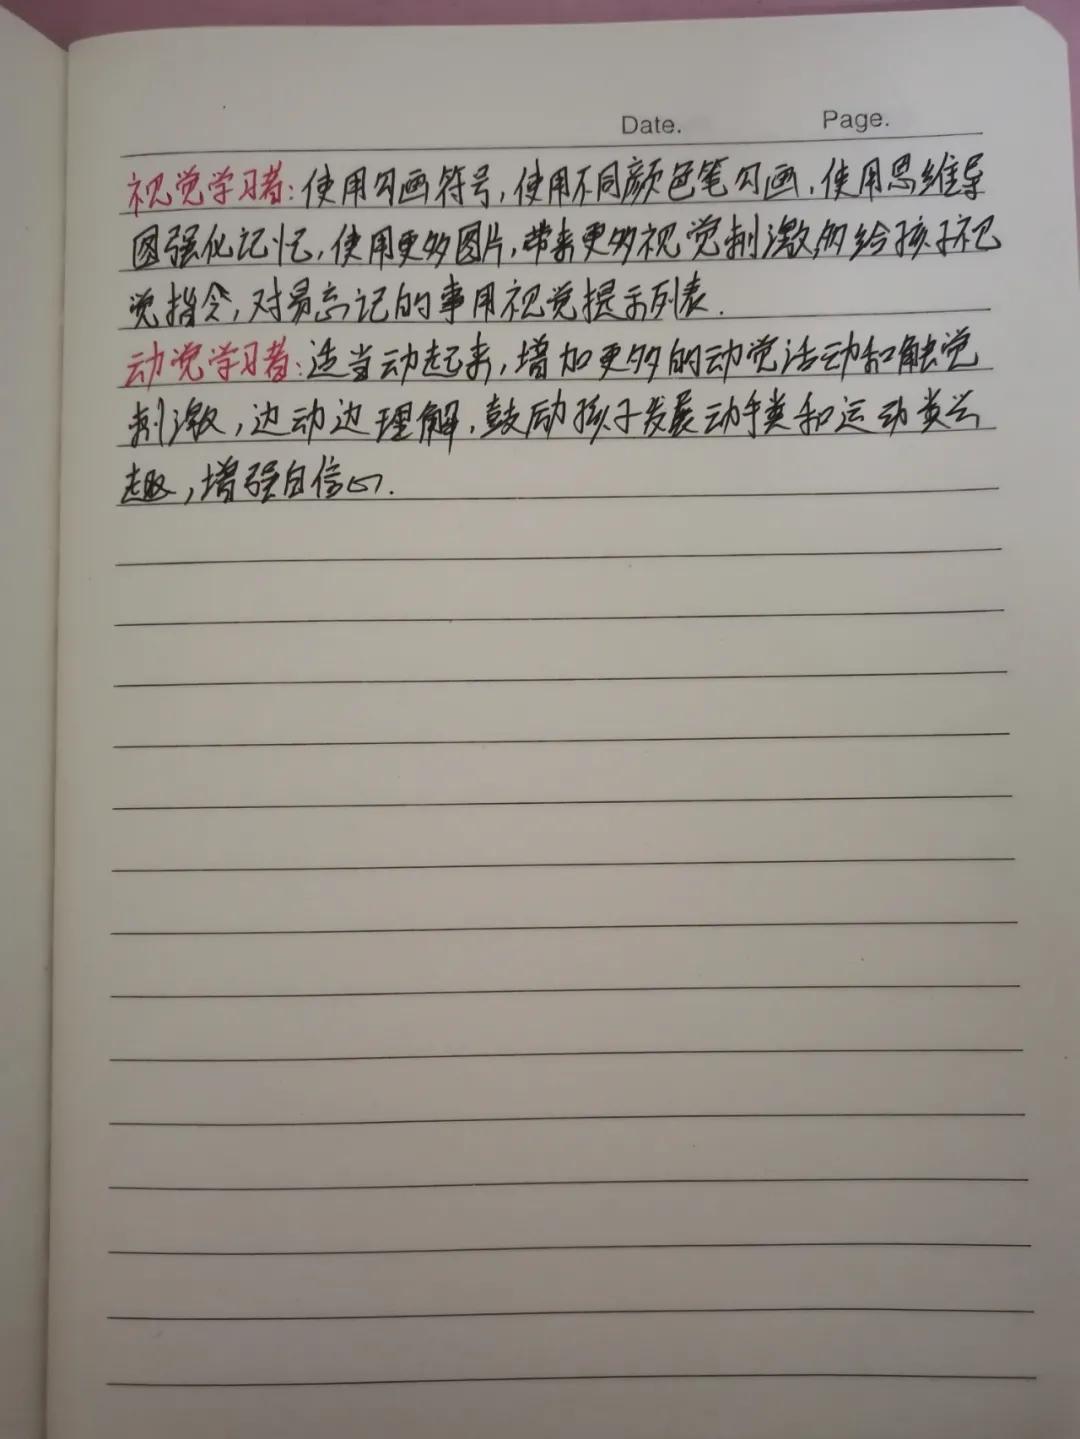 Date. Page.
视觉学习者:使用勾画符号,使用不同颜色笔勾画,使用思维导
图强化记忆,使用更多图片,带来更多视觉刺激,多给孩子视
觉指令,对易忘记的事用视觉提示列表.
动觉学习者:适当动起来,增加更多的动觉活动和触觉
刺激,边动边理解,鼓励孩子发展动手类和运动类兴
趣,增强自信心.